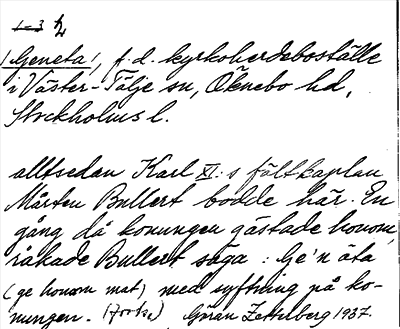 1-3 ½
/Geneta/, f.d. kyrkoherdeboställe
i Väster-Tälje sn, Öknebo hd,
Stockholms l.
alltsedan Karl XI:s fältkaplan
Mårten Bullert bodde här. En
gång då konungen gästade honom,
råkade Bullert säga: Ge'n äta
(ge honom mat) med syftning på ko-
nungen. Göran Zetterberg 1937.